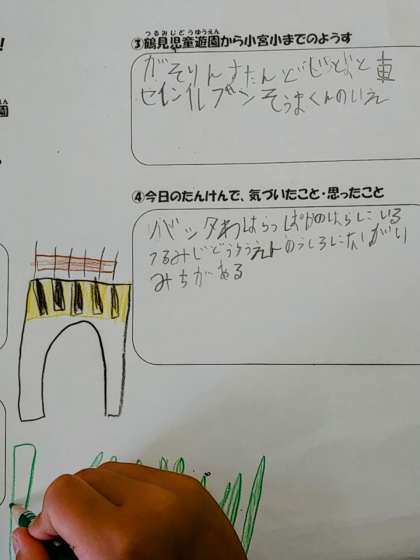 つるみじどうゆうえん
③鶴見児童遊園から小宮小までのようす
がそりんすたんど じどおと 車
セブンイレブン そうまくんのいえ
④今日のたんけんで、気づいたこと・思ったこと
バッタわはらっぱかのはらにいる
つるみじどうゆうえんのうしろにながい
みちがある